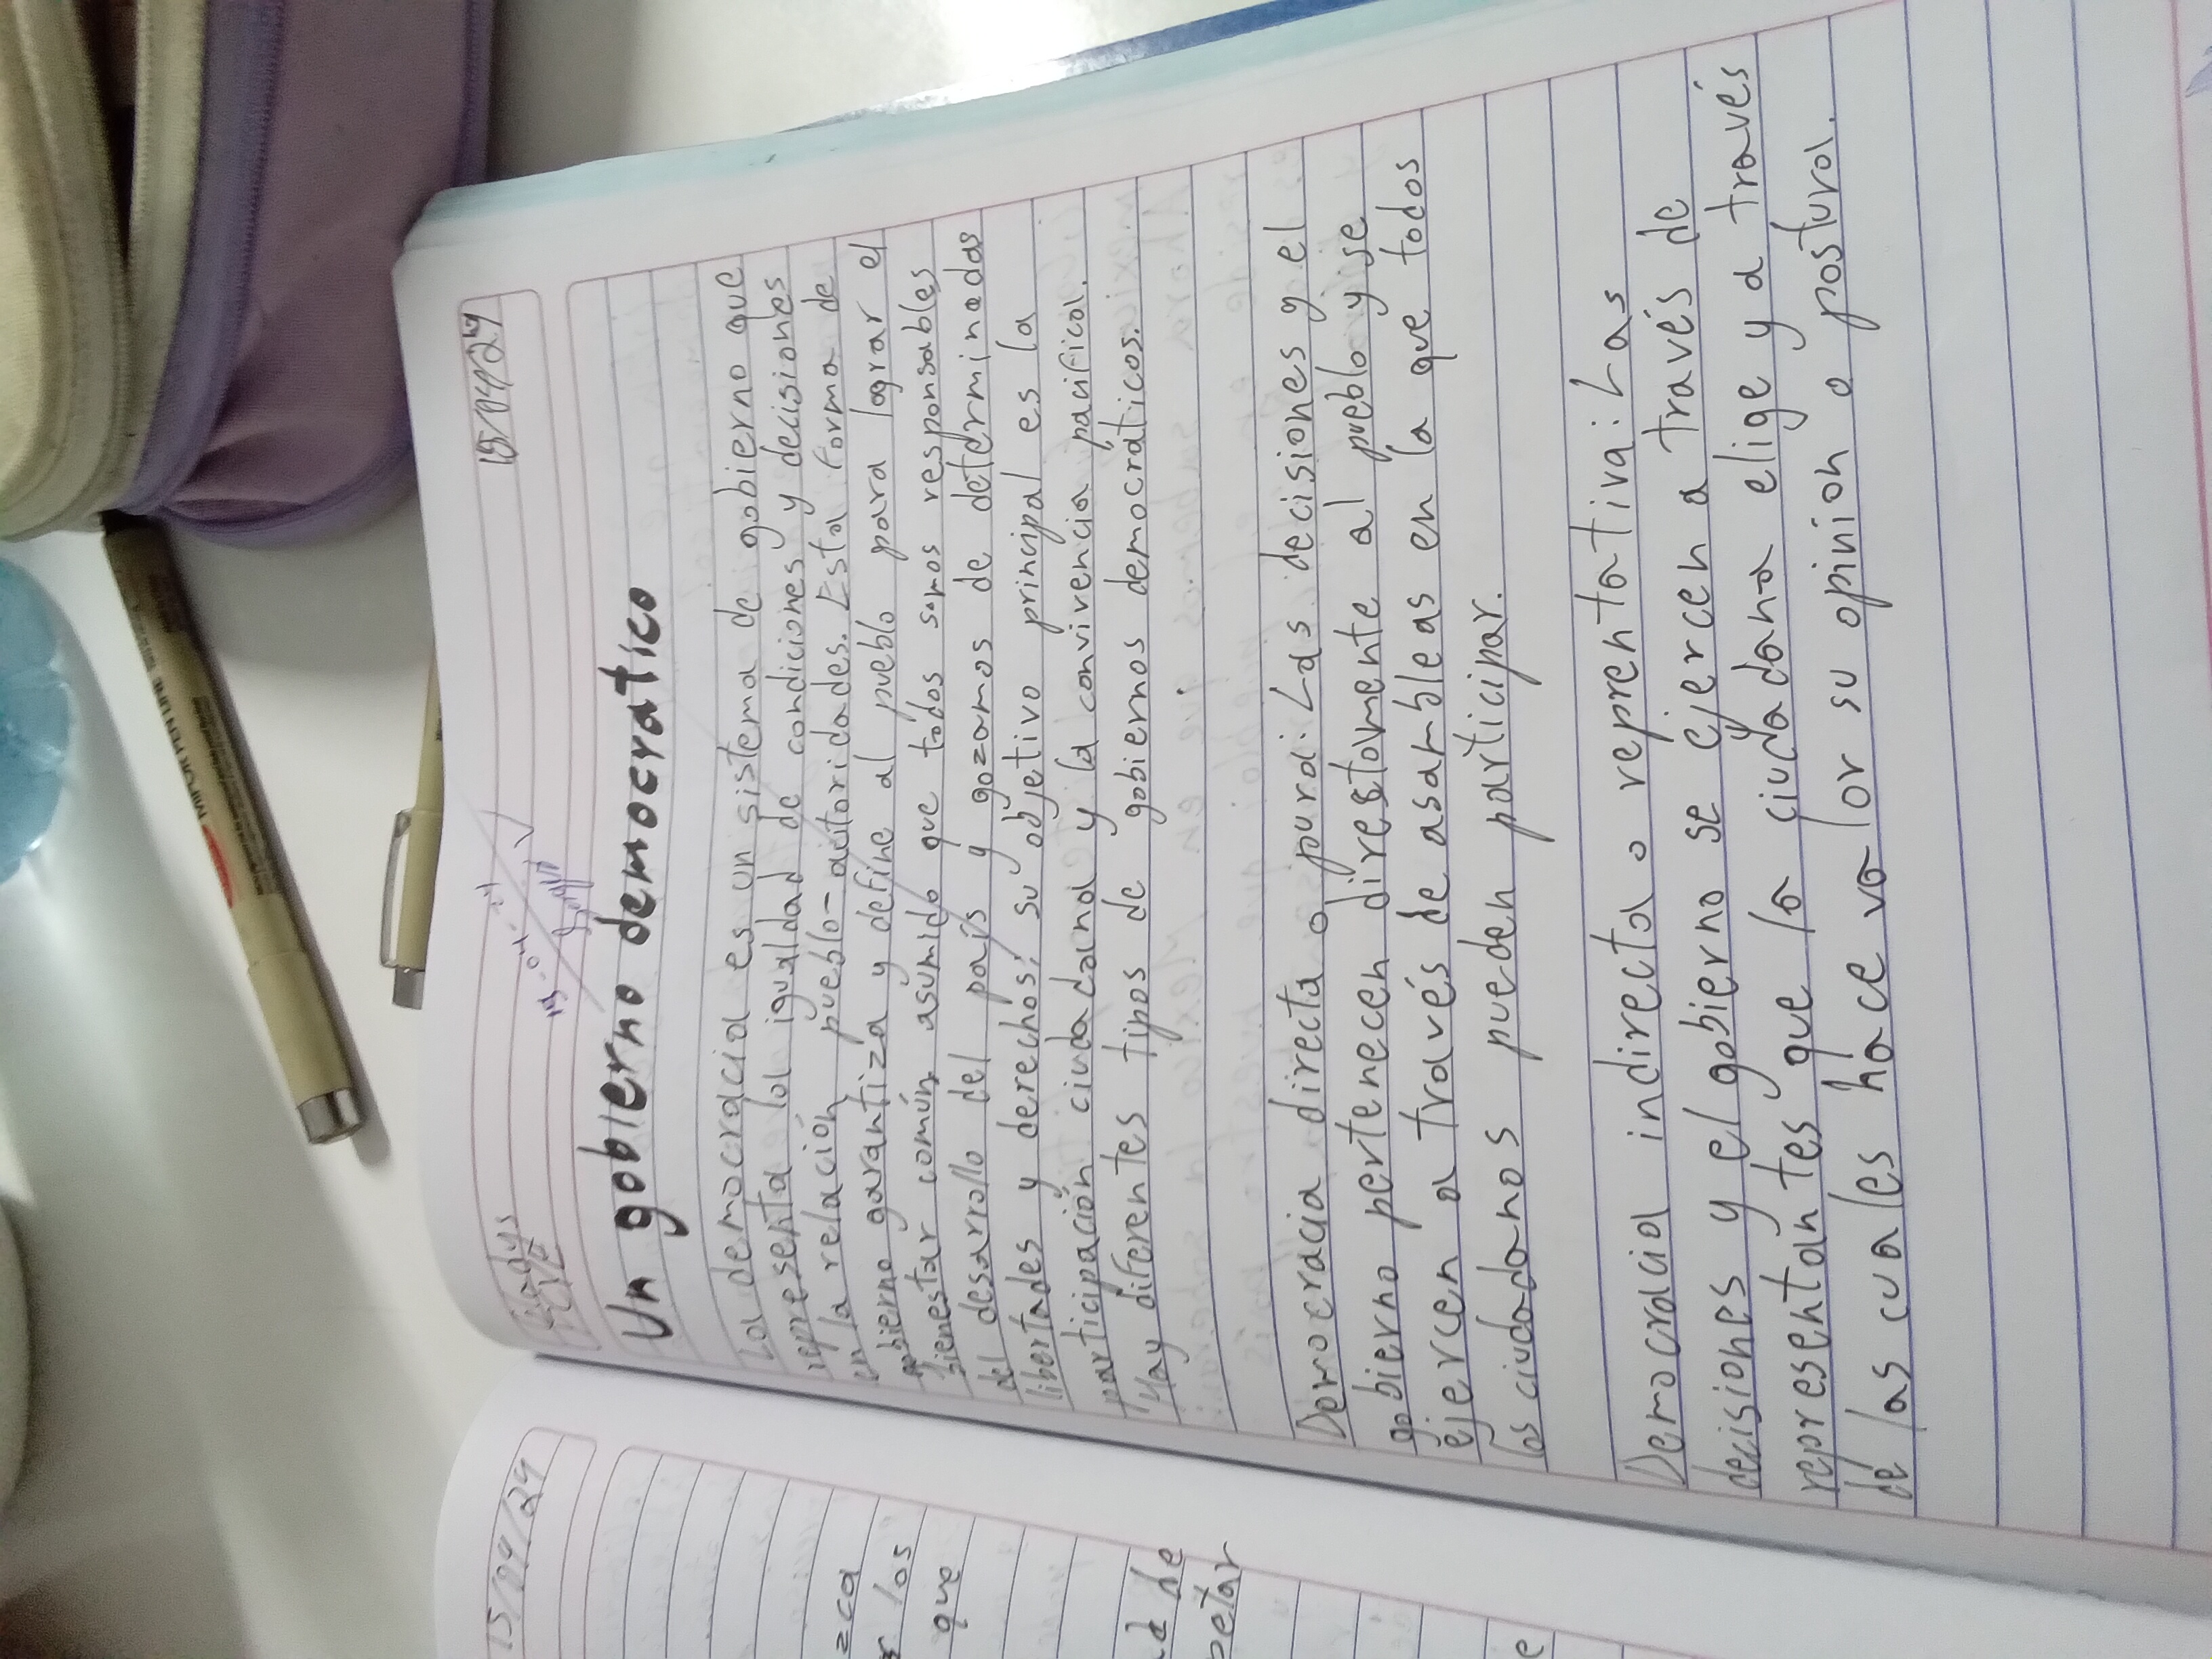 15/04/24
zca
r los
que
d de
petar
e
15/04/24
Un gobierno democratico
La democracia es un sistema de gobierno que
representa la igualdad de condiciones y decisiones
en la relación pueblo-autoridades. Esta forma de
gobierno garantiza y define al pueblo para lograr el
bienestar común, asumido que todos somos responsables
del desarrollo del país y gozamos de determinadas
libertades y derechos; su objetivo principal es la
participación ciudadana y la convivencia pacifica.
Hay diferentes tipos de gobiernos democráticos.
Democracia directa o pura: Las decisiones y el
gobierno pertenecen direstamente al pueblo y se
ejercen a través de asambleas en la que todos
los ciudadanos pueden participar.
Democracia indirecta o reprentativa: Las
decisiones y el gobierno se ejercen a través de
representantes que la ciudadana elige y a través
de las cuales hace valor su opinion o postura.
MICRON PEN LINE